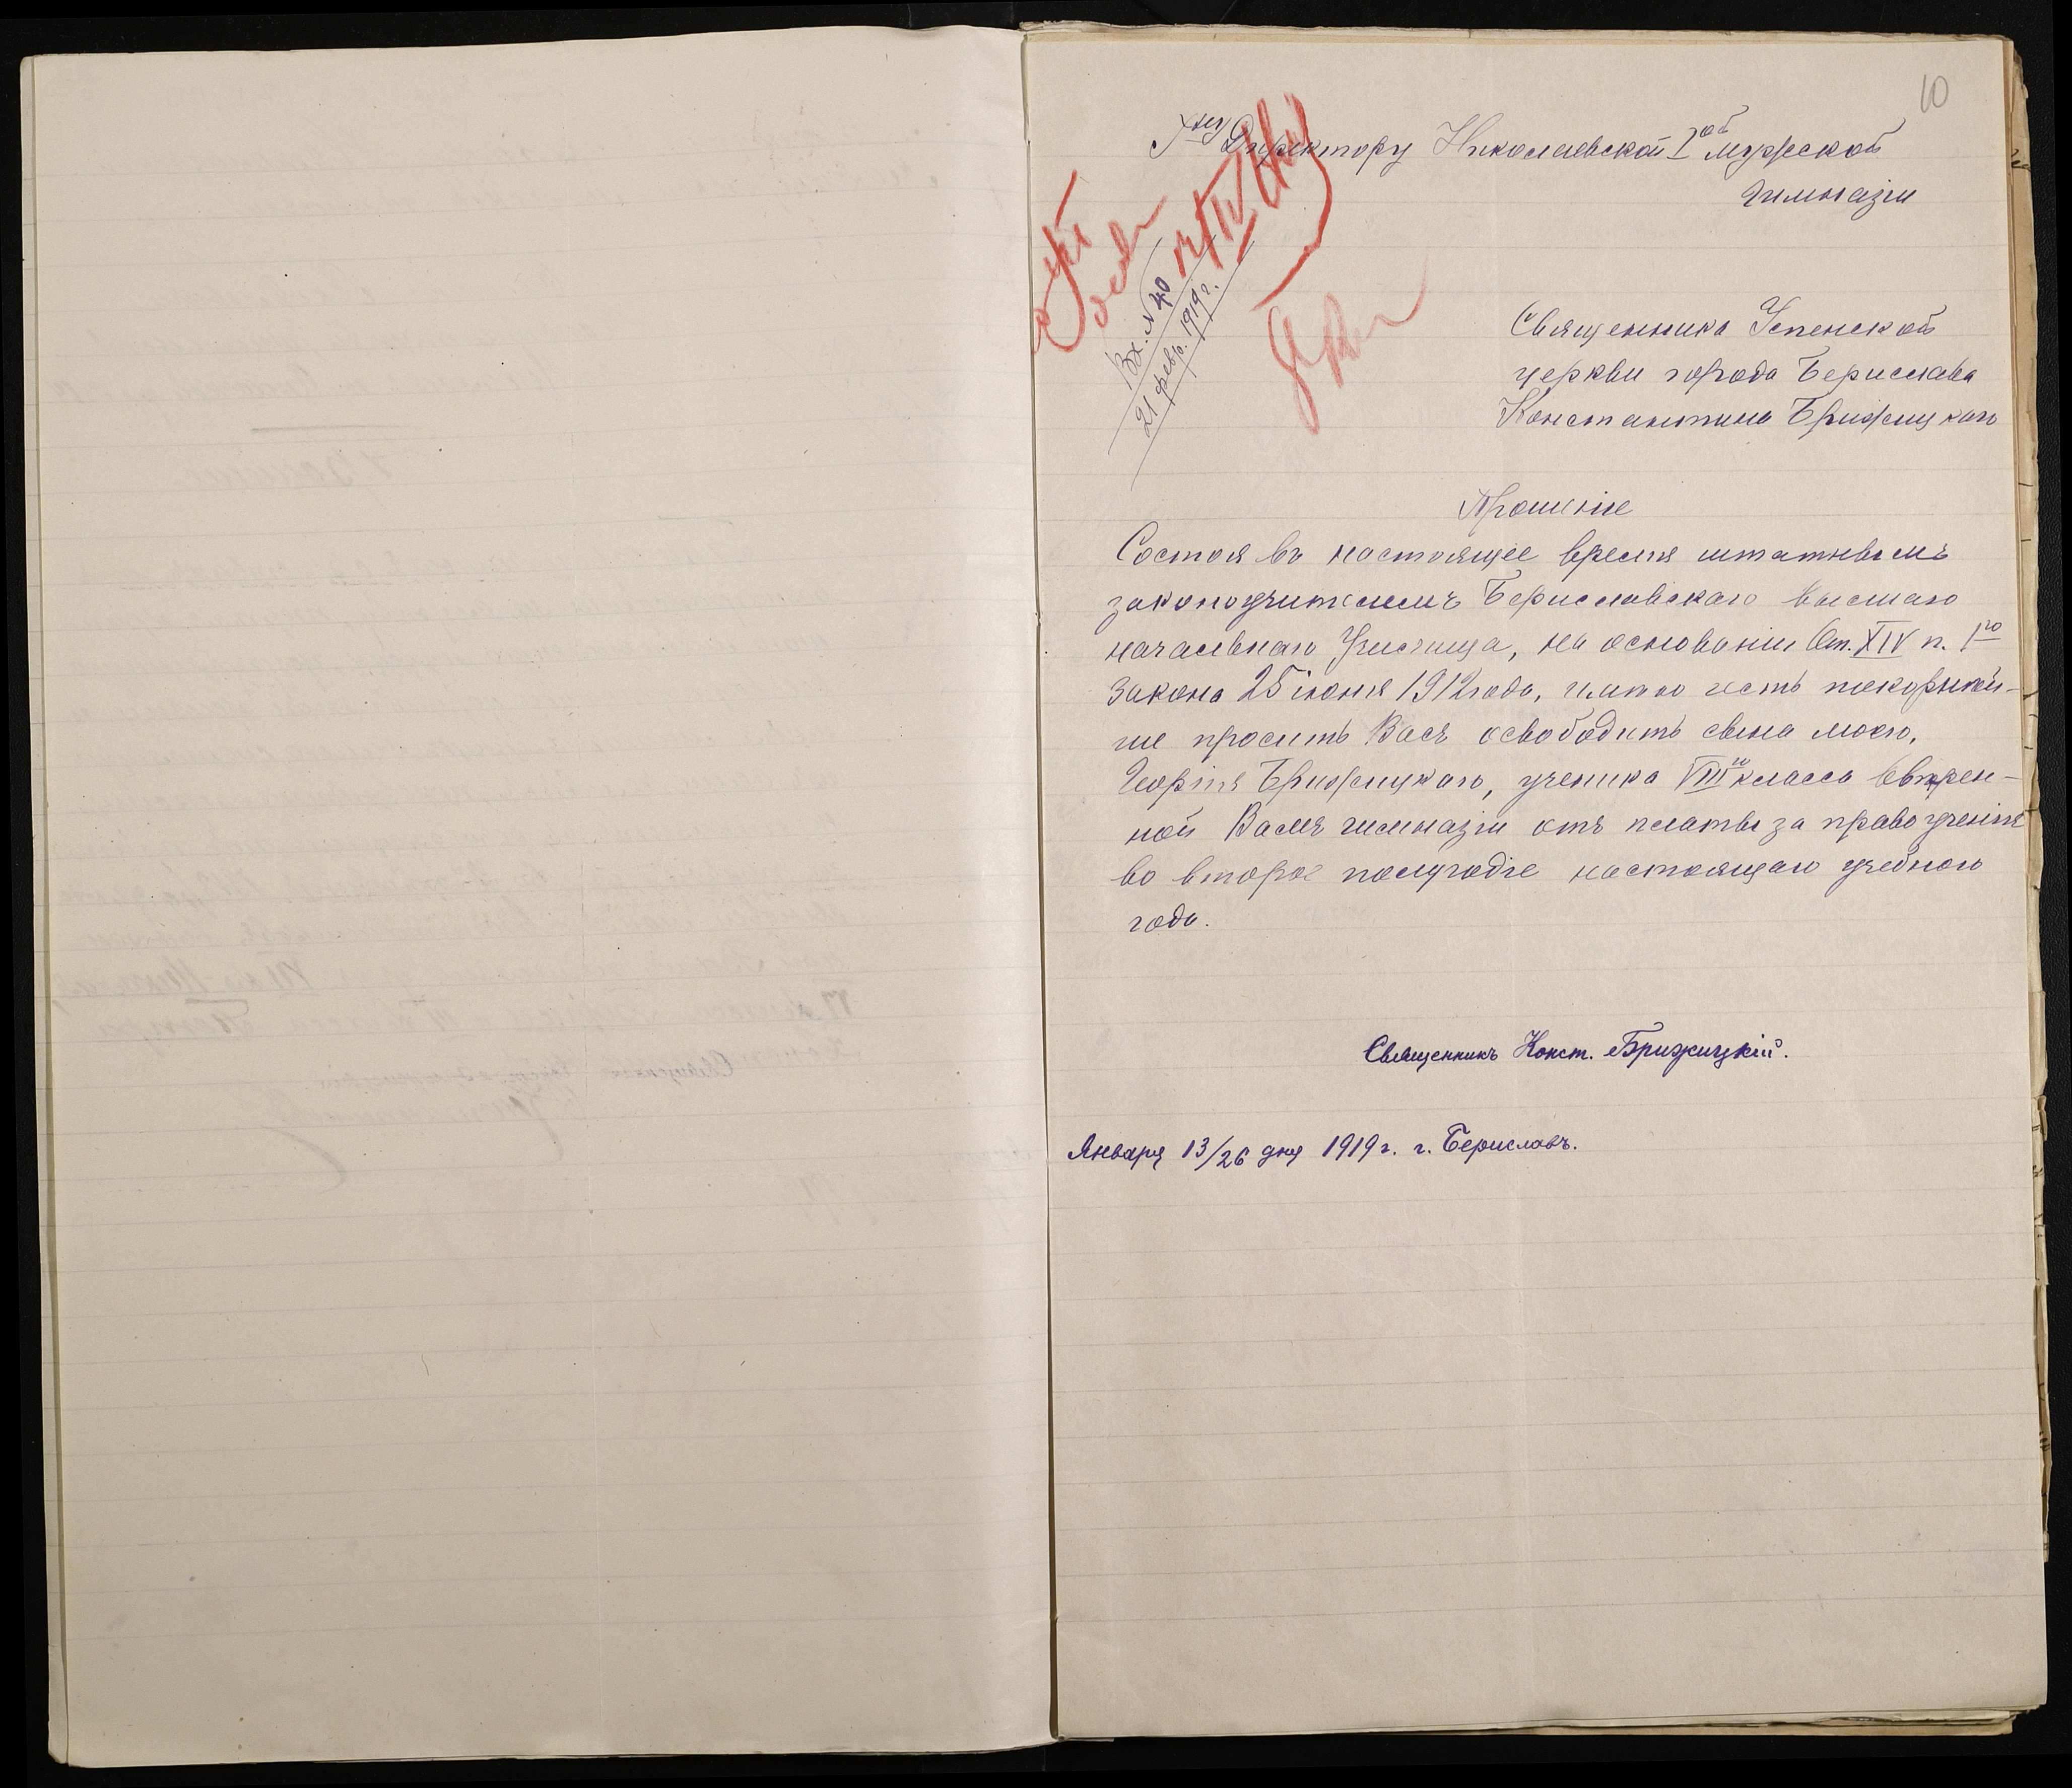 10
Г-ну Директору Николаевской I-ой мужской
Гимназіи
Вх. № 40
21 февр. 1919 г.
Священника Успенской
церкви города Берислава
Константина Брижицкаго
Прошеніе
Состоя въ настоящее время штатнымъ
законоучителемъ Бериславскаго высшаго
начальнаго Училища, на основаніи От. XIV п. 1го
закона 25 іюня 1912 года, имѣю честь покорнѣй-
ше просить Васъ освободить сына моего,
Георгія Брижицкаго, ученика VIIIго класса ввѣрен-
ной Вамъ гимназіи отъ платы за право ученія
во второе полугодіе настоящаго учебного
года.
Священникъ Конст. Брижицкій.
Января 13/26 дня 1919 г. г. Бериславъ.